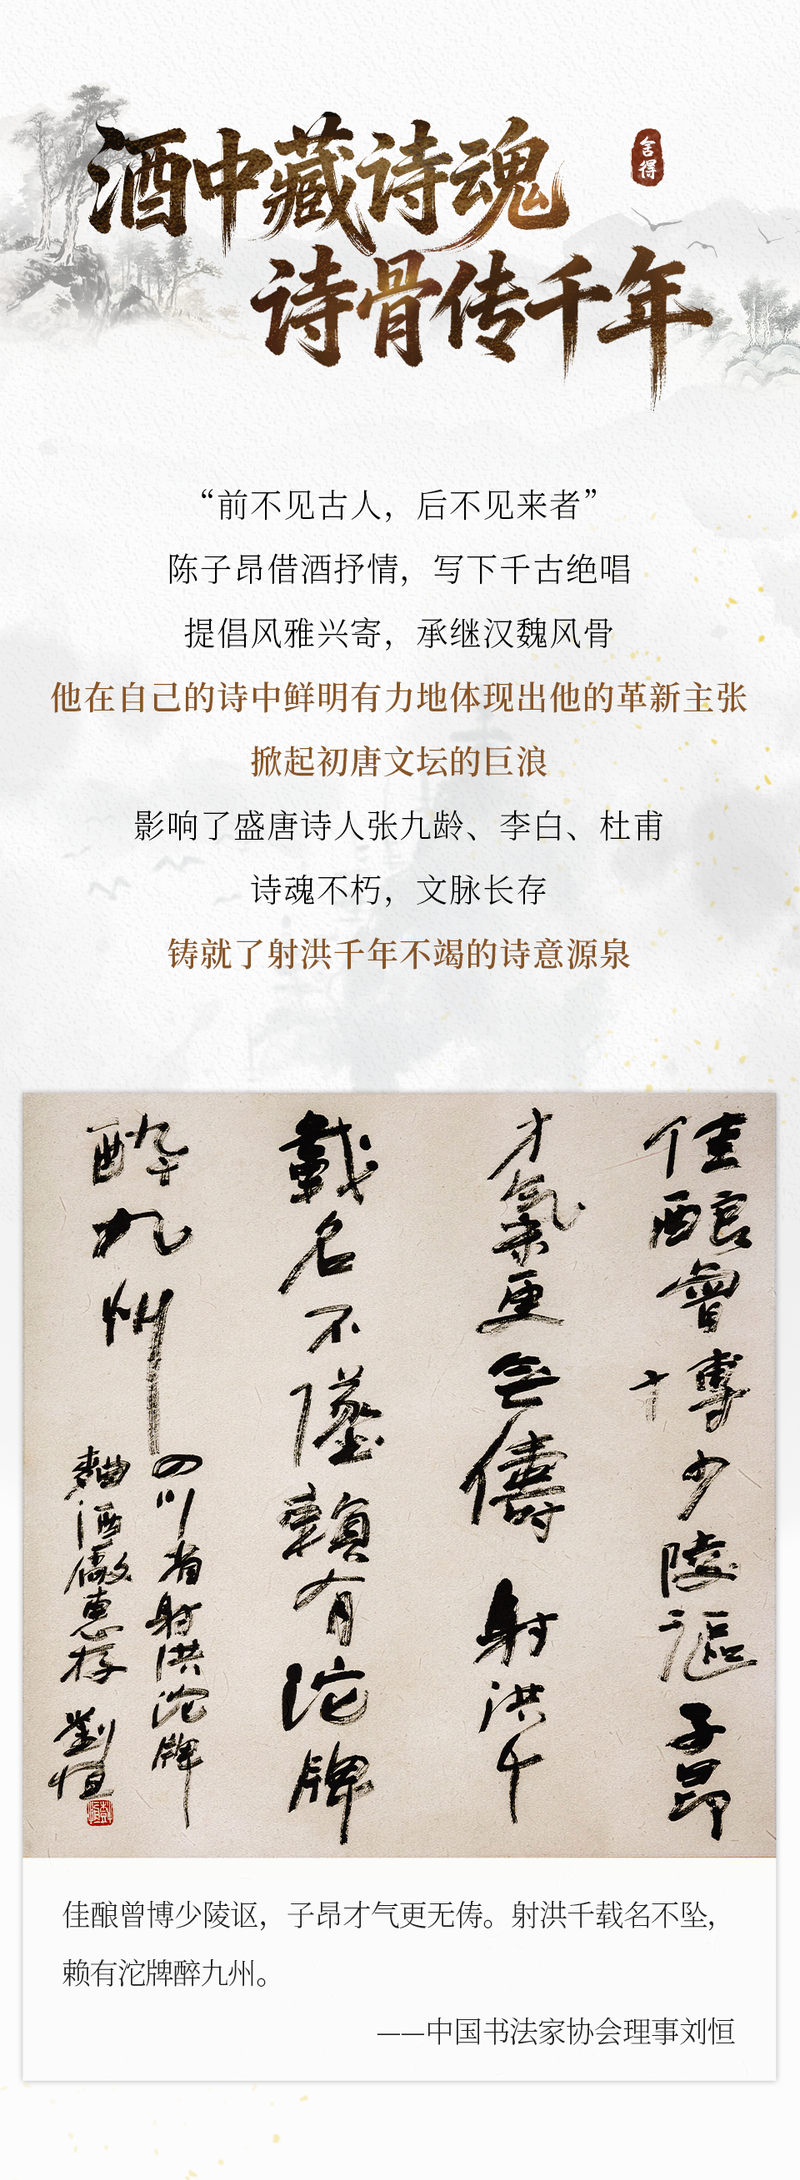 酒中藏诗魂
舍得
诗骨传千年
“前不见古人，后不见来者”
陈子昂借酒抒情，写下千古绝唱
提倡风雅兴寄，承继汉魏风骨
他在自己的诗中鲜明有力地体现出他的革新主张
掀起初唐文坛的巨浪
影响了盛唐诗人张九龄、李白、杜甫
诗魂不朽，文脉长存
铸就了射洪千年不竭的诗意源泉
佳酿曾博少陵讴子昂
才氣更無儔 射洪千
載名不墜賴有沱牌
醉九州
四川省射洪沱牌
麯酒廠惠存 劉恒
佳酿曾博少陵讴，子昂才气更无俦。射洪千载名不坠，
赖有沱牌醉九州。
——中国书法家协会理事刘恒